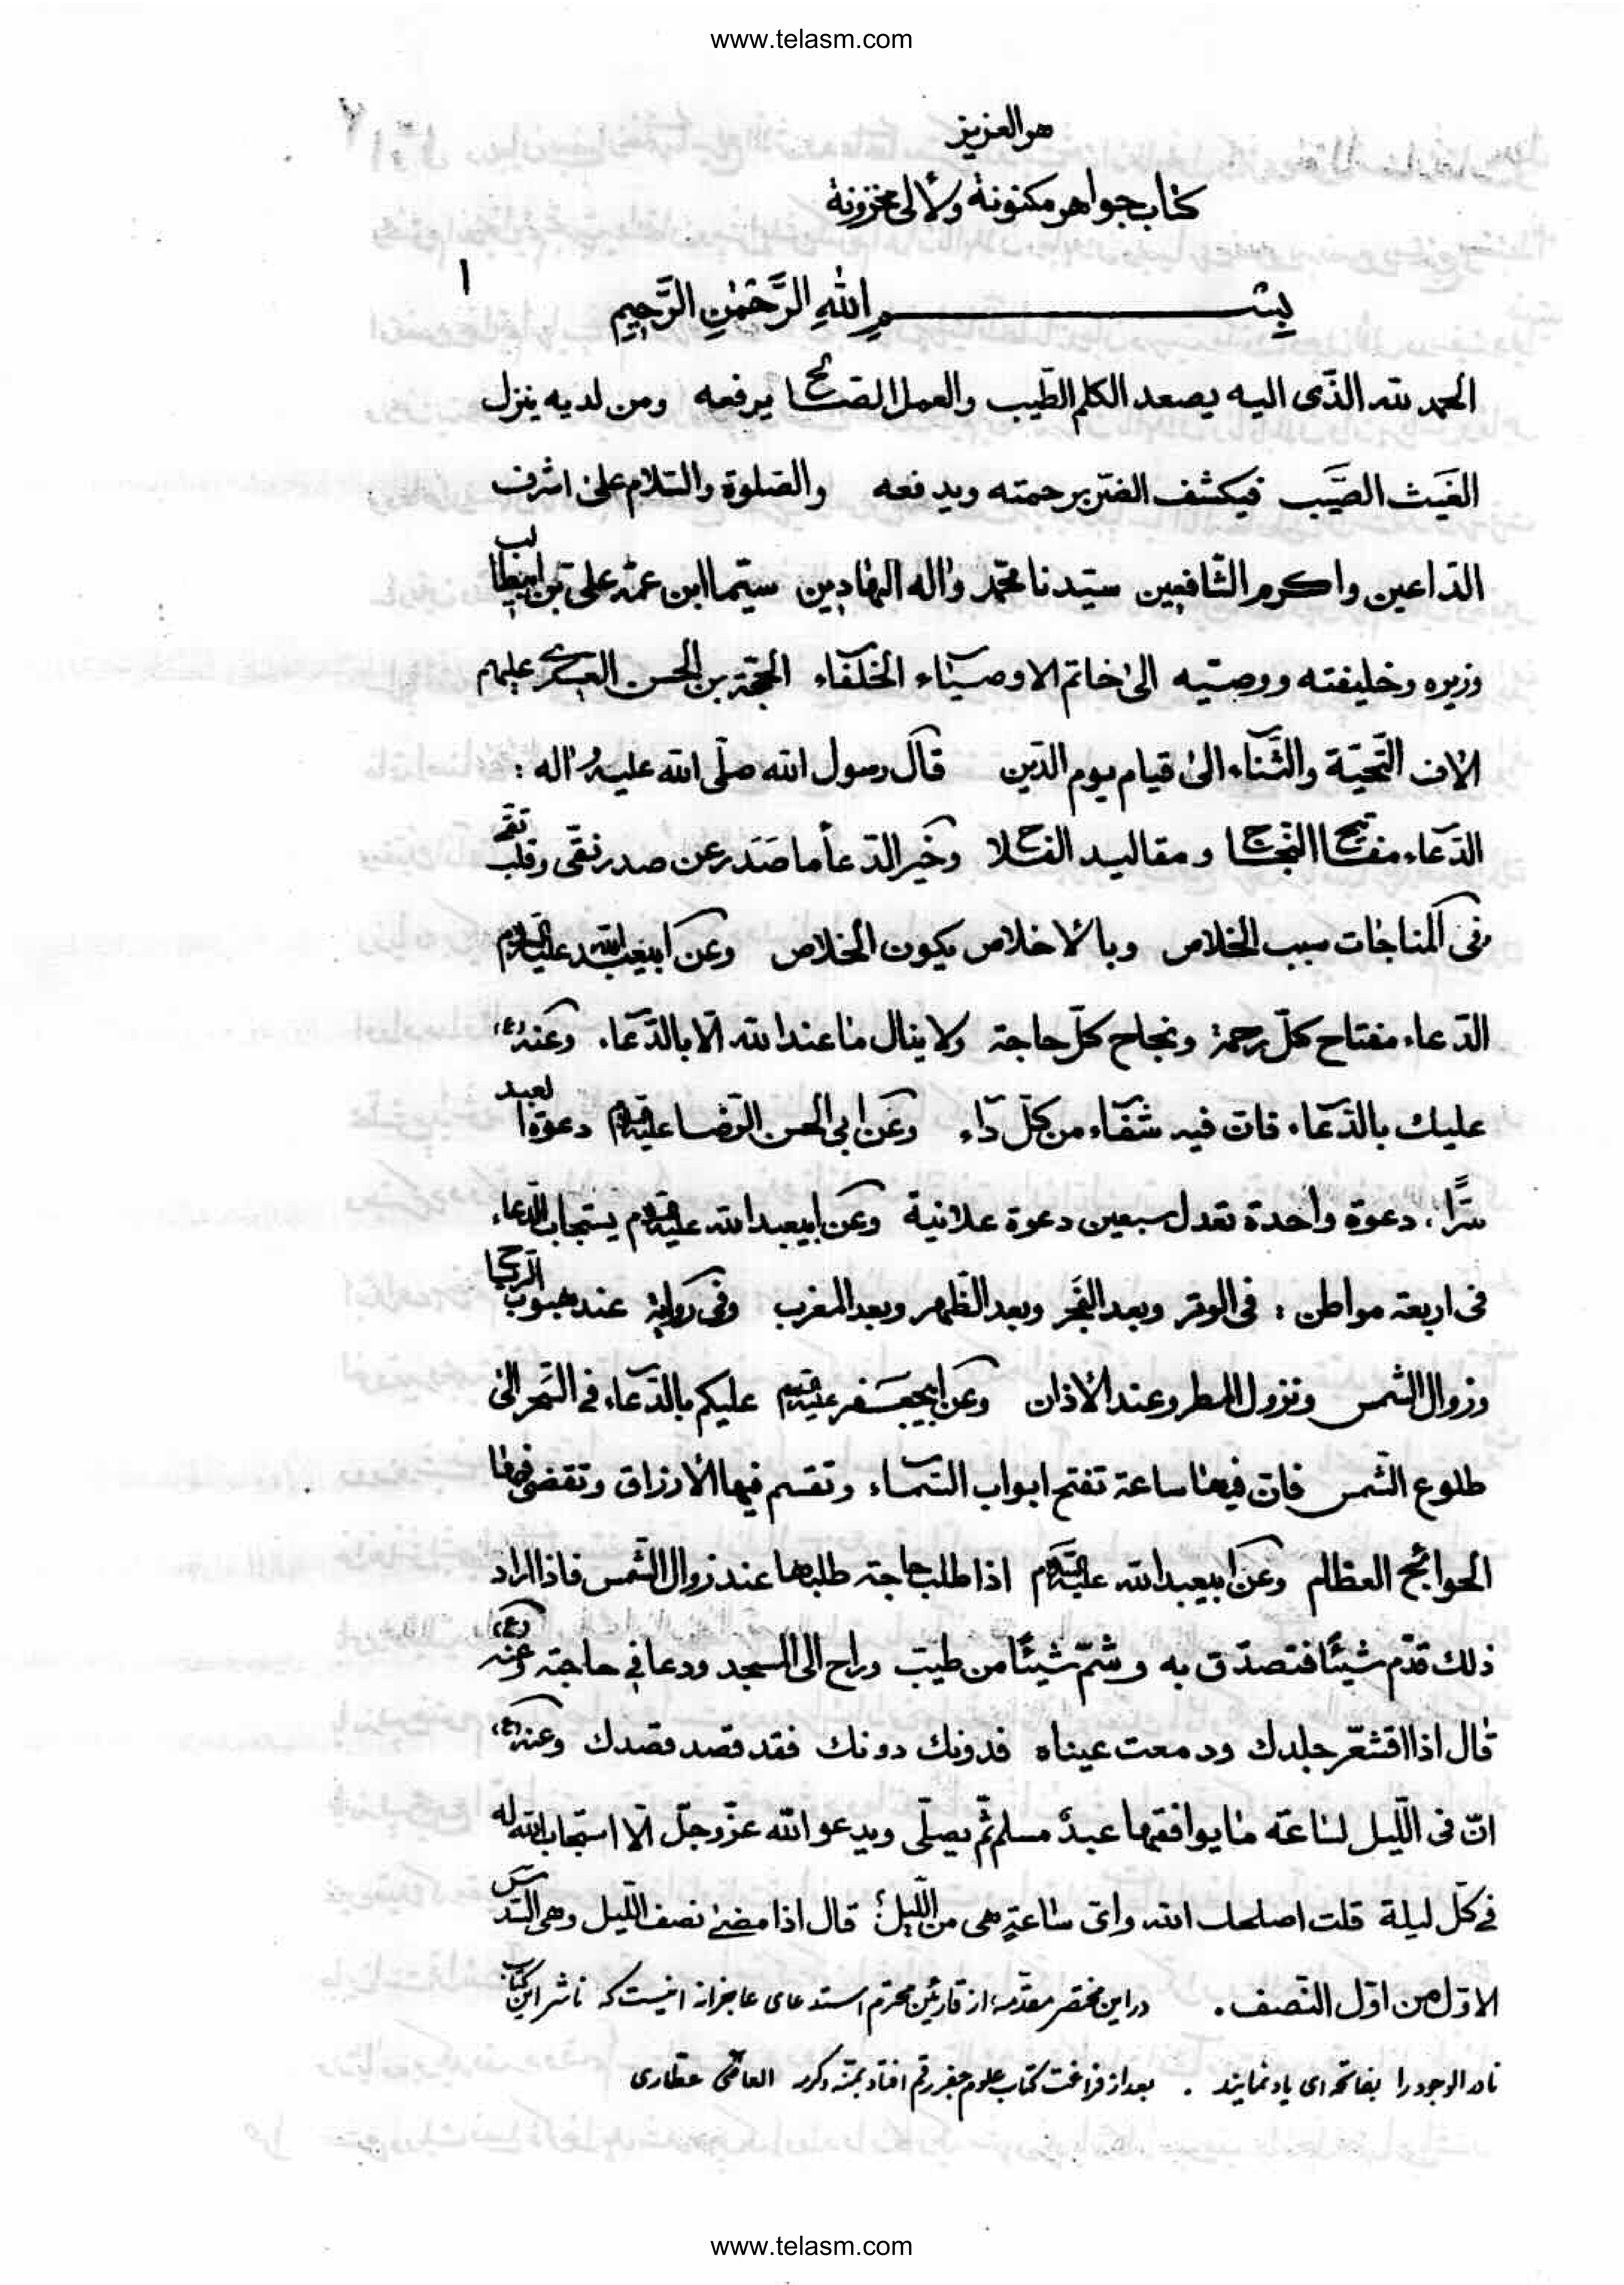 www.telasm.com
هو العزیز
کتاب جواهر مکنونة ولألی مخزونة
۱
بِسْمِ اللهِ الرَّحْمٰنِ الرَّحِیمِ
الحمد لله الذّی الیه یصعد الکلم الطّیب والعمل الصّالح یرفعه ومن لدیه ینزل
الغَیث الصَّیِّب فیکشف الضّر برحمته ویدفعه والصّلوة والسّلام علیٰ اشرف
الدّاعین واکرم الشّافعین سیّدنا محمّد واٰله الهٰادین سیّما ابن عمّه علی بن ابیطالب
وزیره وخلیفته ووصیّه الیٰ خاتم الاوصیٰاء الخلفاء الحجّة بن الحسن العسکری علیهم
الاف التّحیّة والثّناء الیٰ قیام یوم الدّین قال رسول الله صلّی الله علیه واٰله :
الدّعاء مفتاح النّجاح ومقالید الفلاح وخیر الدّعأ ما صَدَر عن صدر نقّی وقلب تقّی
وفی المناجات سبب الخلاص وبالاخلاص یکون الخلاص وعن ابیعبدالله علیه السّلام
الدّعاء مفتاح کلّ رحمة ونجاح کلّ حاجة ولا ینال مٰا عند الله الّا بالدّعاء وعنه (ع)
علیك بالدّعاء فانّ فیه شفاء من کلّ دٰاء وعن ابی الحسن الرّضا علیه السّلام دعوة العبد
سرًّا، دعوة واحدة تعدل سبعین دعوة علانیة وعن ابیعبدالله علیه السّلام یستجاب الدّعاء
فی اربعة مواطن : فی الوتر وبعد الفجر وبعد الظّهر وبعد المغرب وفی روایة عند هبوب الرّیاح
وزوال الشّمس ونزول المطر وعند الأذان وعن ابیجعفر علیه السّلام علیکم بالدّعاء فی السّحر الیٰ
طلوع الشّمس فانّ فیهٰا ساعة تفتح ابواب السّماء وتقسم فیها الأرزاق وتقضی فیهٰا
الحوائج العظام وعن ابیعبدالله علیه السّلام اذا طلب حاجة طلبها عند زوال الشّمس فاذا اراد
ذلك قدّم شیئًا فتصدّق به وشمّ شیئًا من طیب وراح الی المسجد ودعا فی حاجته وعنه (ع)
قال اذا اقشعرّ جلدك ودمعت عیناه فدونك دونك فقد قصد قصدك وعنه (ع)
انّ فی اللّیل لسٰاعة مٰا یوافقها عبدٌ مسلم ثمّ یصلّی ویدعو الله عزّ وجلّ الّا استجاب الله له
فی کلّ لیلة قلت اصلحك الله وایّ سٰاعةٍ هی من اللّیل؟ قال اذا مضیٰ نصف اللّیل وهی السّدس
الاوّل من اوّل النّصف . در این مختصر مقدّمه از قارئین محترم استدعای عاجزانه اینست که ناشر این کتاب
نادر الوجود را بفاتحه ای یاد نمایند . بعد از فراغت کتاب علوم جفر رقم افتاد بمنّه وکرمه العاصی عطاری
www.telasm.com